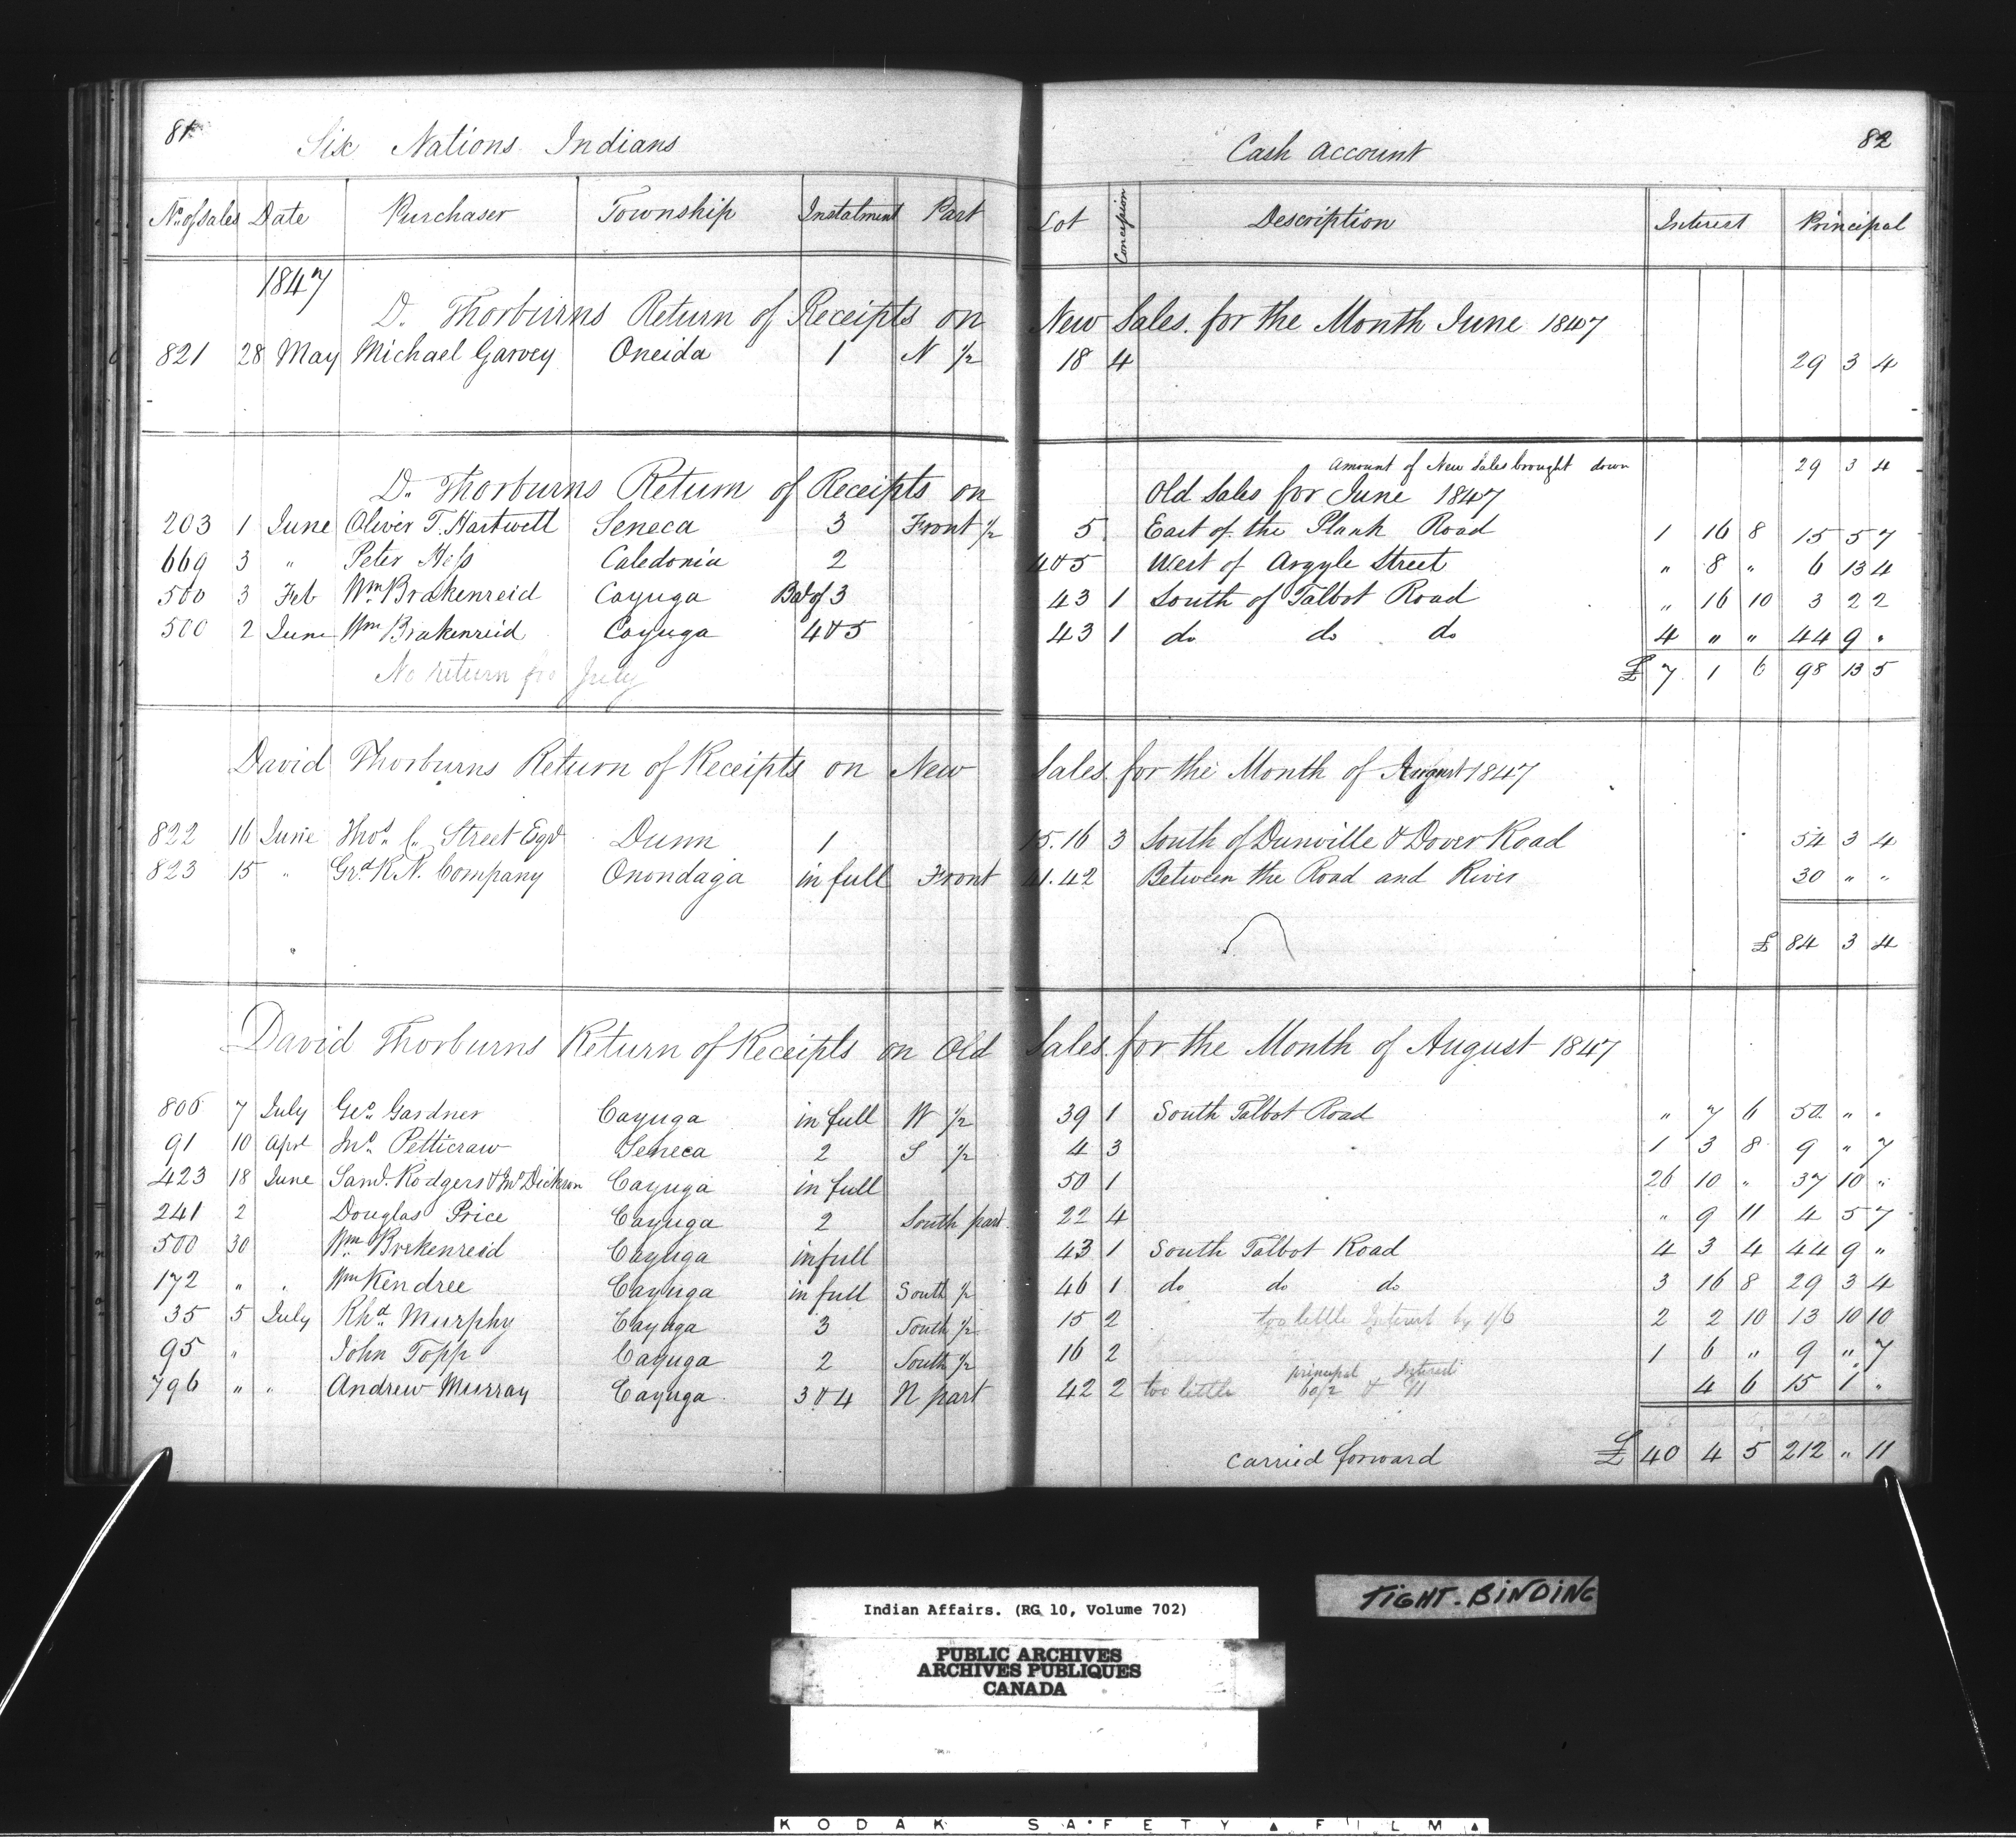 81 Six Nations Indians Cash account 82
No. of Sales Date Purchaser Township Instalment Part Lot Concession Description Interest Principal
1847
D. Thorburns Return of Receipts on New Sales for the Month June 1847
821 28 May Michael Garvey Oneida 1 N ½ 18 4 29 3 4
Amount of New Sales brought down 29 3 4
D. Thorburns Return of Receipts on Old Sales for June 1847
203 1 June Oliver T. Hartwell Seneca 3 Front ½ 5 East of the Plank Road 1 16 8 15 5 7
669 3 " Peter Hess Caledonia 2 4 & 5 West of Argyle Street " 8 " 6 13 4
500 3 Feb Wm. Brakenreid Cayuga Bal of 3 43 1 South of Talbot Road " 16 10 3 2 2
500 2 June Wm Brakenreid Cayuga 4 & 5 43 1 do do do 4 " " 44 9 "
No return for July £ 7 1 6 98 13 5
David Thorburns Return of Receipts on New Sales for the Month of August 1847
822 16 June Thos. C. Street Esqr Dunn 1 15.16 3 South of Dunville & Dover Road 54 3 4
823 15 " Grd. R. N. Company Onondaga in full Front 41.42 Between the Road and River 30 " "
" £ 84 3 4
David Thorburns Return of Receipts on Old Sales for the Month of August 1847
806 7 July Geo. Gardner Cayuga in full W ½ 39 1 South Talbot Road " 7 6 50 " "
91 10 Apl Jno. Petticraw Seneca 2 S ½ 4 3 1 3 8 9 " 7
423 18 June Saml. Rodgers & Jno Dickson Cayuga in full 50 1 26 10 " 37 10 "
241 2 Douglas Price Cayuga 2 South part 22 4 " 9 11 4 5 7
500 30 Wm. Brakenreid Cayuga in full 43 1 South Talbot Road 4 3 4 44 9 "
172 " " Wm Kendree Cayuga in full South ½ 46 1 do do do 3 16 8 29 3 4
35 5 July Rhd. Murphy Cayuga 3 South ½ 15 2 too little Interest by 1/6 2 2 10 13 10 10
95 " John Topp Cayuga 2 South ½ 16 2 1 6 " 9 " 7
796 " " Andrew Murray Cayuga 3 & 4 N part 42 2 too little principal & Interest 4 6 15 1 "
carried forward £ 40 4 5 212 " 11
TIGHT-BINDING
Indian Affairs. (RG 10, Volume 702)
PUBLIC ARCHIVES
ARCHIVES PUBLIQUES
CANADA
KODAK SAFETY FILM